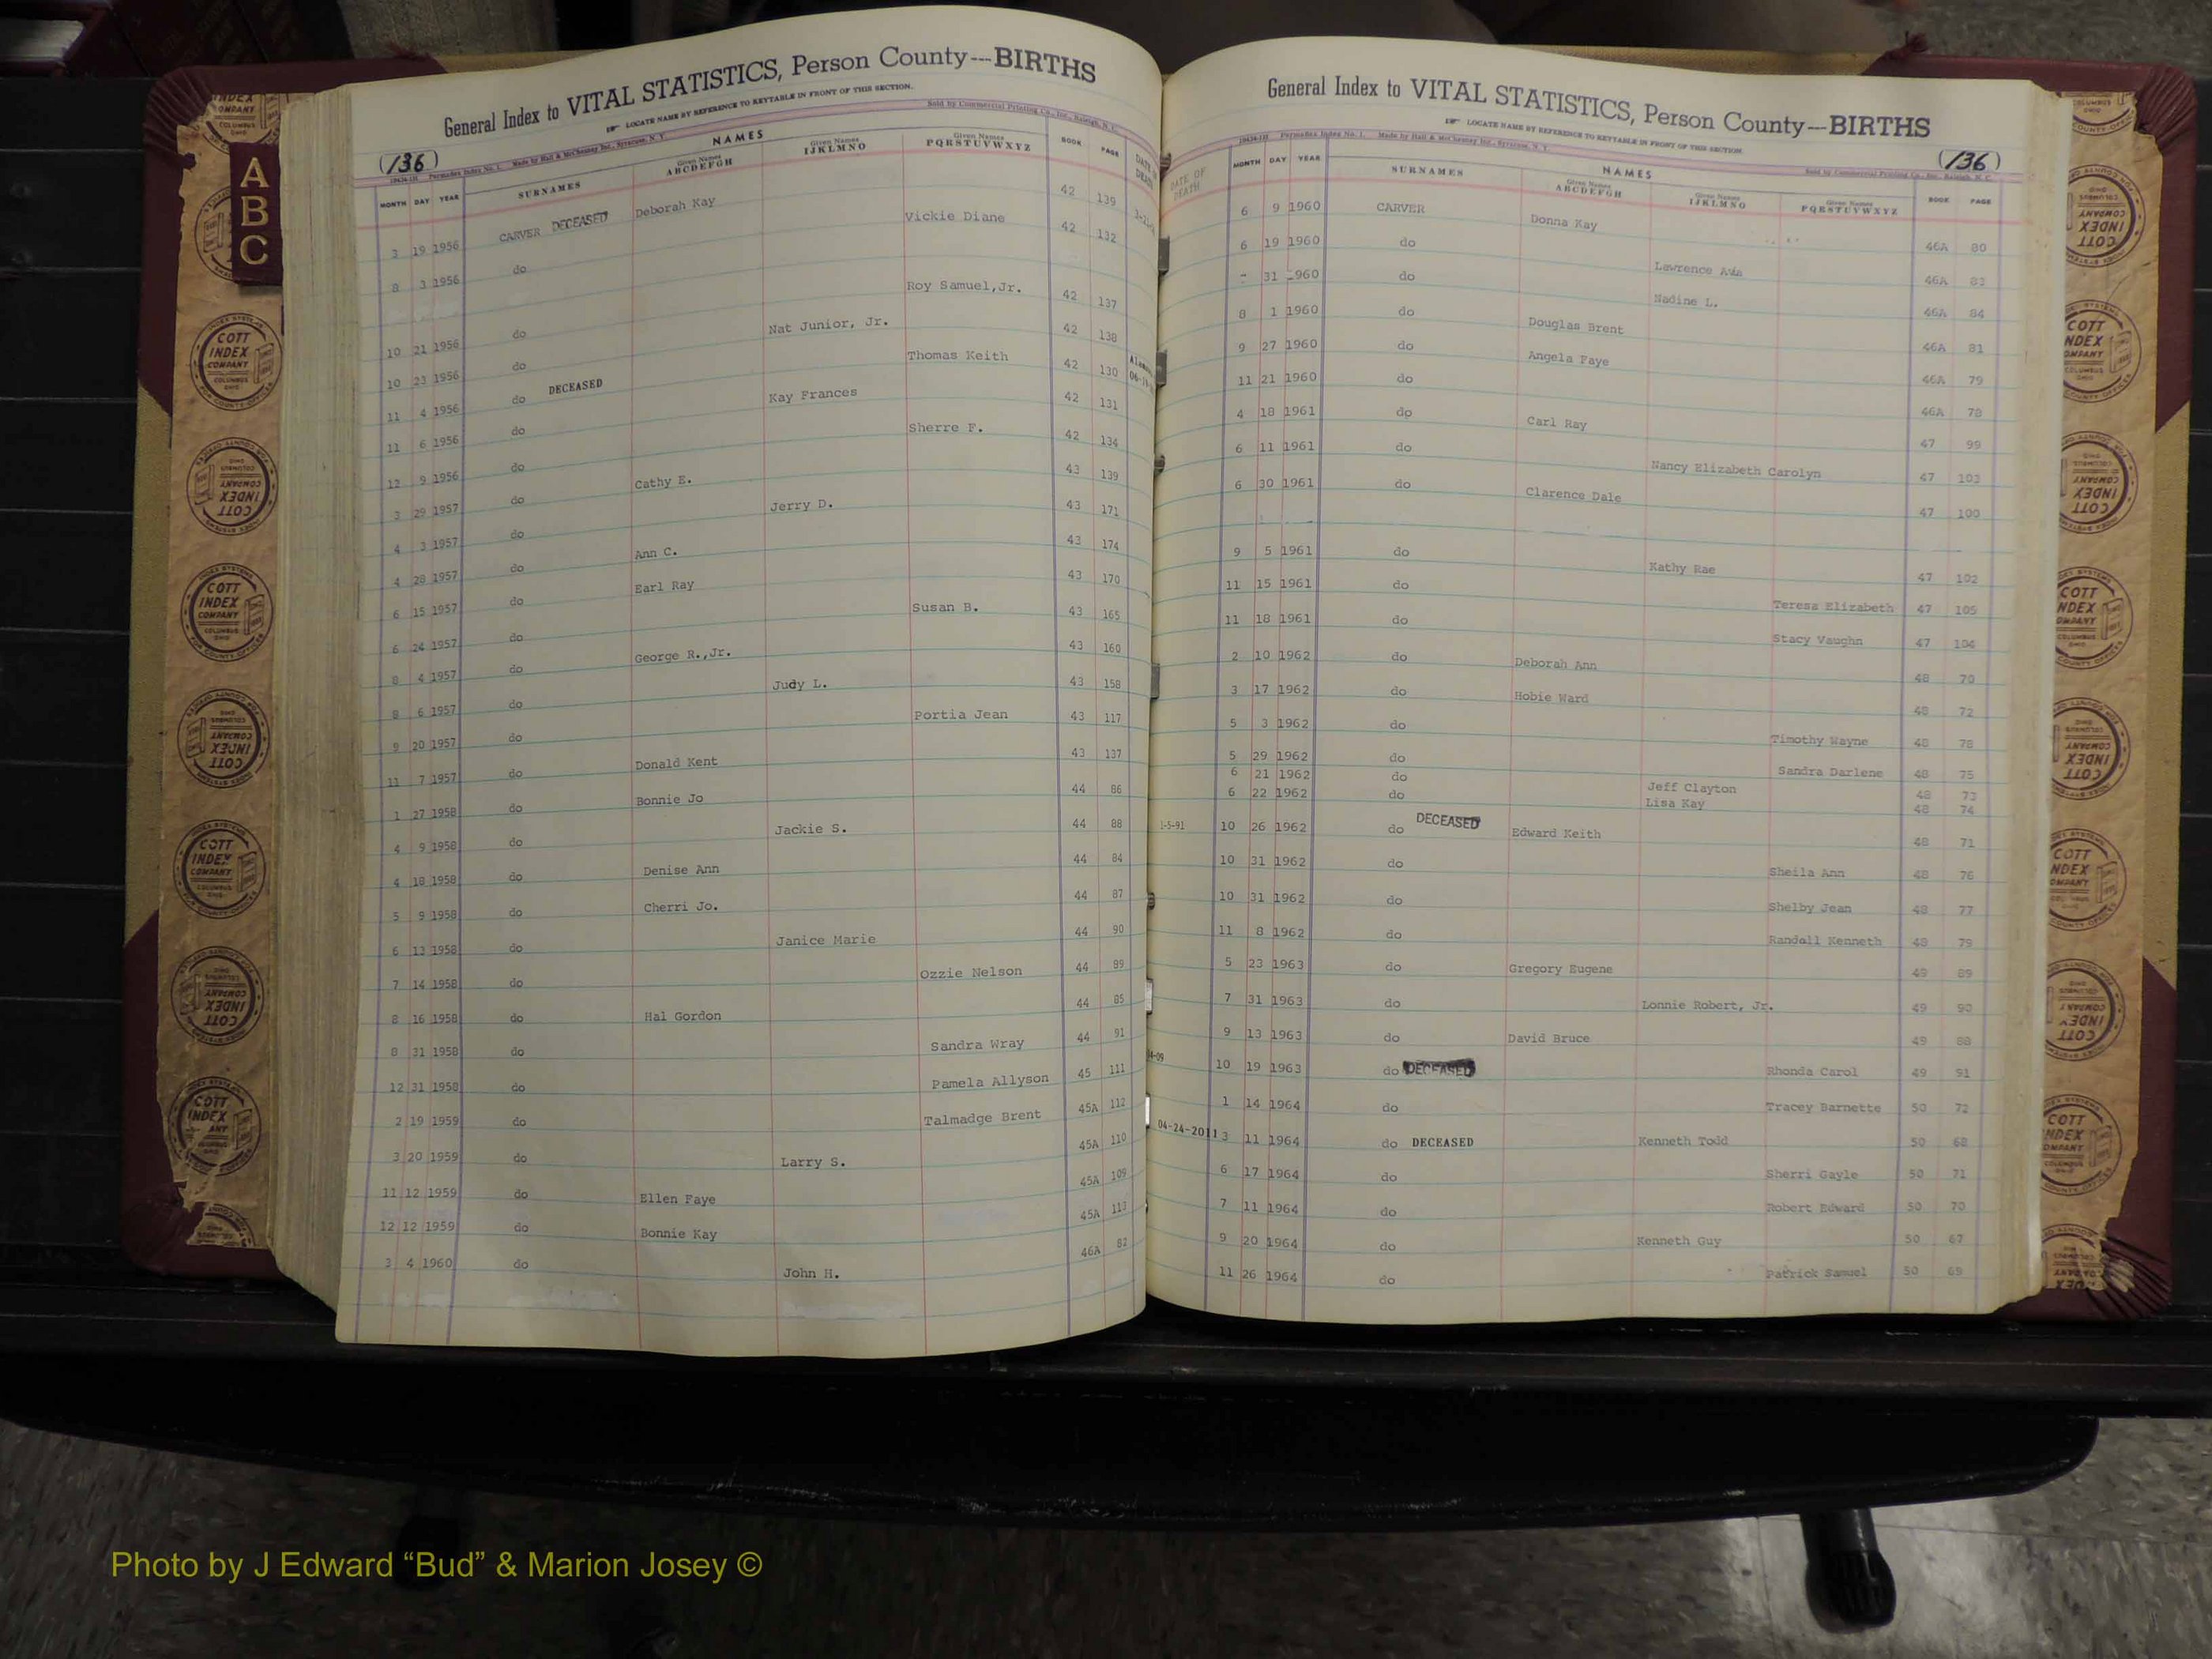 General Index to VITAL STATISTICS, Person County---BIRTHS
LOCATE NAME BY REFERENCE TO KEYTABLE IN FRONT OF THIS SECTION.
Sold by Commercial Printing Co., Inc., Raleigh, N. C.
(136)
Permadex Index No. 1. Made by Hall & McChesney Inc., Syracuse, N. Y.
NAMES
MONTH DAY YEAR SURNAMES Given Names ABCDEFGH Given Names IJKLMNO Given Names PQRSTUVWXYZ BOOK PAGE DATE OF DEATH
3 19 1956 CARVER DECEASED Deborah Kay 42 139
8 3 1956 do Vickie Diane 42 132
10 21 1956 do Roy Samuel,Jr. 42 137
10 23 1956 do Nat Junior, Jr. 42 138
11 4 1956 do DECEASED Thomas Keith 42 130
11 6 1956 do Kay Frances 42 131
12 9 1956 do Sherre F. 42 134
3 29 1957 do Cathy E. 43 139
4 3 1957 do Jerry D. 43 171
4 28 1957 do Ann C. 43 174
6 15 1957 do Earl Ray 43 170
6 24 1957 do Susan B. 43 165
8 4 1957 do George R.,Jr. 43 160
8 6 1957 do Judy L. 43 158
9 20 1957 do Portia Jean 43 117
11 7 1957 do Donald Kent 43 137
1 27 1958 do Bonnie Jo 44 86
4 9 1958 do Jackie S. 44 88
4 18 1958 do Denise Ann 44 84
5 9 1958 do Cherri Jo. 44 87
6 13 1958 do Janice Marie 44 90
7 14 1958 do Ozzie Nelson 44 89
8 16 1958 do Hal Gordon 44 85
8 31 1958 do Sandra Wray 44 91
12 31 1958 do Pamela Allyson 45 111
2 19 1959 do Talmadge Brent 45A 112
3 20 1959 do Larry S. 45A 110
11 12 1959 do Ellen Faye 45A 109
12 12 1959 do Bonnie Kay 45A 113
3 4 1960 do John H. 46A 82
General Index to VITAL STATISTICS, Person County---BIRTHS
LOCATE NAME BY REFERENCE TO KEYTABLE IN FRONT OF THIS SECTION.
(136)
Permadex Index No. 1. Made by Hall & McChesney Inc., Syracuse, N. Y.
Sold by Commercial Printing Co., Inc., Raleigh, N. C.
NAMES
DATE OF DEATH MONTH DAY YEAR SURNAMES Given Names ABCDEFGH Given Names IJKLMNO Given Names PQRSTUVWXYZ BOOK PAGE
6 9 1960 CARVER Donna Kay 46A 80
6 19 1960 do Lawrence 46A 83
31 960 do Nadine L. 46A 84
8 1 1960 do Douglas Brent 46A 81
9 27 1960 do Angela Faye 46A 79
11 21 1960 do 46A 78
4 18 1961 do Carl Ray 47 99
6 11 1961 do Nancy Elizabeth Carolyn 47 103
6 30 1961 do Clarence Dale 47 100
9 5 1961 do Kathy Rae 47 102
11 15 1961 do Teresa Elizabeth 47 105
11 18 1961 do Stacy Vaughn 47 104
2 10 1962 do Deborah Ann 48 70
3 17 1962 do Hobie Ward 48 72
5 3 1962 do Timothy Wayne 48 78
5 29 1962 do Sandra Darlene 48 75
6 21 1962 do Jeff Clayton 48 73
6 22 1962 do Lisa Kay 48 74
1-5-91 10 26 1962 do DECEASED Edward Keith 48 71
10 31 1962 do Sheila Ann 48 76
10 31 1962 do Shelby Jean 48 77
11 8 1962 do Randall Kenneth 48 79
5 23 1963 do Gregory Eugene 49 89
7 31 1963 do Lonnie Robert, Jr. 49 90
9 13 1963 do David Bruce 49 88
10 19 1963 do DECEASED Rhonda Carol 49 91
1 14 1964 do Tracey Barnette 50 72
04-24-2011 3 11 1964 do DECEASED Kenneth Todd 50 68
6 17 1964 do Sherri Gayle 50 71
7 11 1964 do Robert Edward 50 70
9 20 1964 do Kenneth Guy 50 67
11 26 1964 do Patrick Samuel 50 69
A
B
C
COTT
INDEX
COMPANY
COLUMBUS
OHIO
Photo by J Edward “Bud” & Marion Josey ©